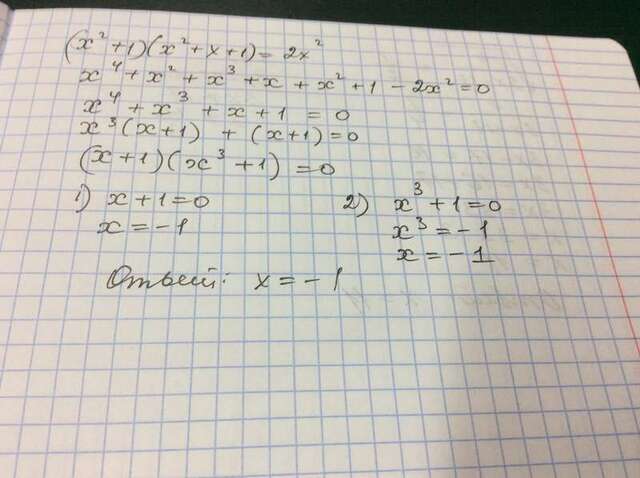 (x²+1)(x²+x+1)=2x²
x⁴+x²+x³+x+x²+1-2x²=0
x⁴+x³+x+1=0
x³(x+1)+(x+1)=0
(x+1)(x³+1)=0
1) x+1=0 2) x³+1=0
x=-1 x³=-1
x=-1
Ответ: x=-1